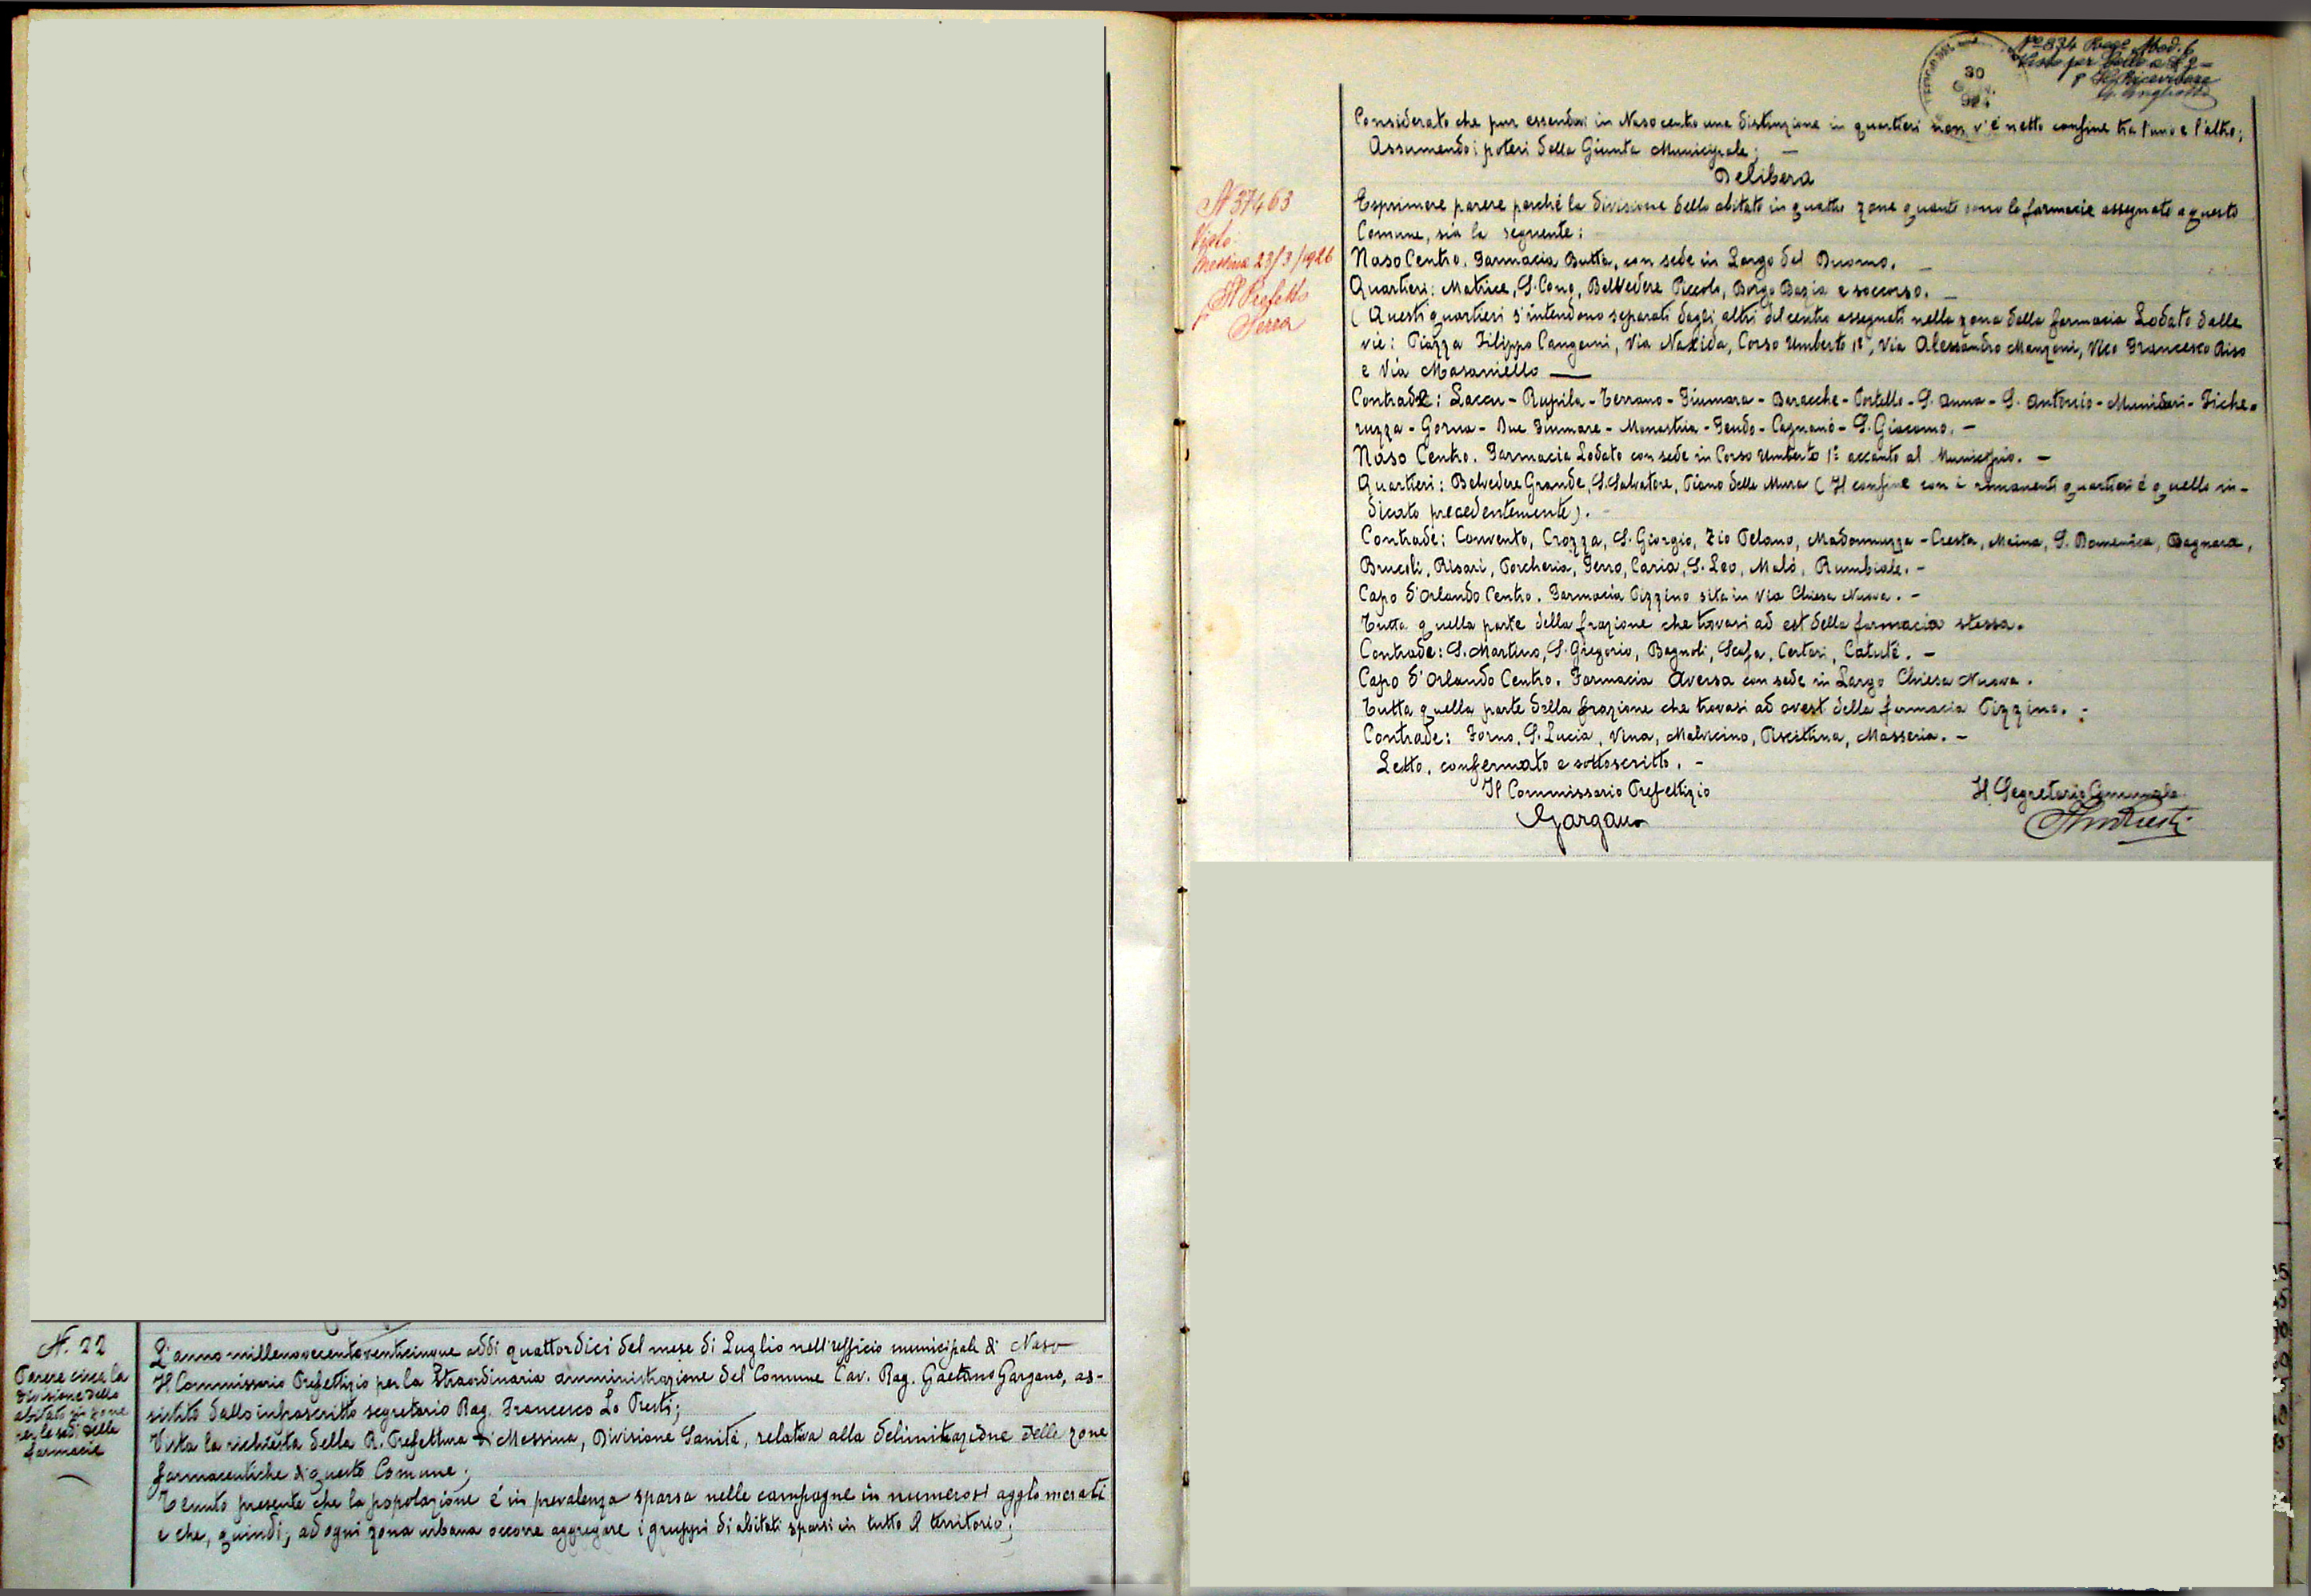 N. 22
Parere circa la
divisione dello
abitato in zone
per le sedi delle
farmacie
L'anno millenovecentoventicinque addì quattordici del mese di Luglio nell'ufficio municipale di Naso
Il Commissario Prefettizio per la straordinaria amministrazione del Comune Cav. Rag. Gaetano Gargano, as-
sistito dallo infrascritto segretario Rag. Francesco Lo Presti;
Vista la richiesta della R. Prefettura di Messina, Divisione Sanità, relativa alla delimitazione delle zone
farmaceutiche di questo Comune;
Tenuto presente che la popolazione é in prevalenza sparsa nelle campagne in numerosi agglomerati
e che, quindi, ad ogni zona urbana occorre aggregare i gruppi di abitati sparsi in tutto il territorio;
30
Nº 834 Reg. Mod. 6
Visto per bollo a £ 2 -
Il Ricevitore
Considerato che pur essendovi in Naso centro una distinzione in quartieri non v'é netto confine tra l'uno e l'altro;
Assumendo i poteri della Giunta Municipale; —
Delibera
Esprimere parere perché la divisione dello abitato in quattro zone quante sono le farmacie assegnate a questo
Comune, sia la seguente:
Naso Centro. Farmacia Butta, con sede in Largo del Duomo. —
Quartieri: Matrice, S. Cono, Belvedere Piccolo, Borgo Bazia e soccorso. —
( Questi quartieri s'intendono separati dagli altri del centro assegnati nella zona della farmacia Lodato dalle
vie: Piazza Filippo Cangemi, Via Naxida, Corso Umberto 1º, Via Alessandro Manzoni, Vico Francesco Riso
e Via Masaniello —
Contrade: Laccu - Rupila - Terrano - Fiumara - Baracche - Portello - S. Anna - S. Antonio - Munidari - Fiche-
ruzza - Gorna - Due Fiumare - Monastria - Feudo - Cagnanó - S. Giacomo. —
Naso Centro. Farmacia Lodato con sede in Corso Umberto 1º accanto al Municipio. —
Quartieri: Belvedere Grande, S. Salvatore, Piano delle Mura ( Il confine con i rimanenti quartieri é quello in-
dicato precedentemente). -
Contrade: Convento, Crozza, S. Giorgio, Zio Pelano, Madonnuzza - Cresta, Maina, S. Domenica, Bagnara,
Brucoli, Risari, Porcheria, Ferro, Caria, S. Leo, Maló, Rumbiale. -
Capo d'Orlando Centro. Farmacia Pizzino sita in Via Chiesa Nuova. -
Tutta quella parte della frazione che trovasi ad est della farmacia stessa.
Contrade: S. Martino, S. Gregorio, Bagnoli, Scafa, Certari, Catuté. -
Capo d'Orlando Centro. Farmacia Aversa con sede in Largo Chiesa Nuova.
Tutta quella parte della frazione che trovasi ad ovest della farmacia Pizzino. -
Contrade: Forno, S. Lucia, Vina, Malvicino, Piscittina, Masseria. -
Letto, confermato e sottoscritto. -
Il Commissario Prefettizio
Gargano
Il Segretario Comunale
N 37463
Visto
Messina 23/3/1926
Il Prefetto